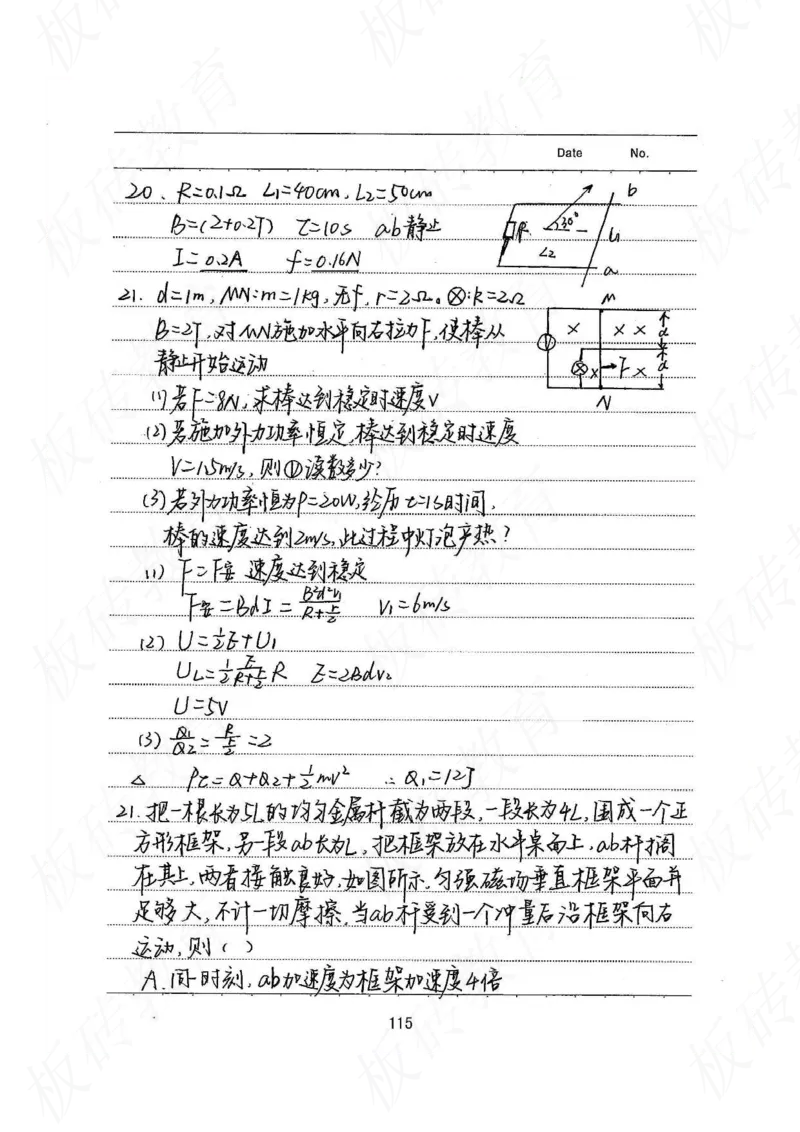 Date No.
20、R=0.1Ω L₁=40cm,L₂=50cm
B=(2+0.2T) t=10s ab静止
I=0.2A f=0.16N
R 30° L₂ L₁ b a
21. d=1m,MN:m=1kg,无f,r=2Ω。⊗:R=2Ω
B=2T,对MN施加水平向右拉力F,使棒从
静止开始运动
M V × × × d × F × d N
(1)若F=8N,求棒达到稳定时速度V
(2)若施加外力功率恒定,棒达到稳定时速度
V=1.5m/s,则Ⓥ读数多少?
(3)若外力功率恒为P=20W,经历t=1s时间,
棒的速度达到2m/s,此过程中灯泡产热?
(1) F=F安 速度达到稳定
F安=BdI=B²d²v₁/(R+r/2) V₁=6m/s
(2) U=½E+U₁
U_L=½E/(R+r/2)R E=2Bdv₂
U=5V
(3) Q₁/Q₂=R/(r/2)=2
△ Pt=Q+Q₂+½mv² ∴Q₁=12J
21.把一根长为5L的均匀金属杆截为两段,一段长为4L,围成一个正
方形框架,另一段ab长为L,把框架放在水平桌面上,ab杆搁
在其上,两者接触良好,如图所示,匀强磁场垂直框架平面并
足够大,不计一切摩擦,当ab杆受到一个冲量后沿框架向右
运动,则( )
A.同一时刻,ab加速度为框架加速度4倍
115
板砖教育